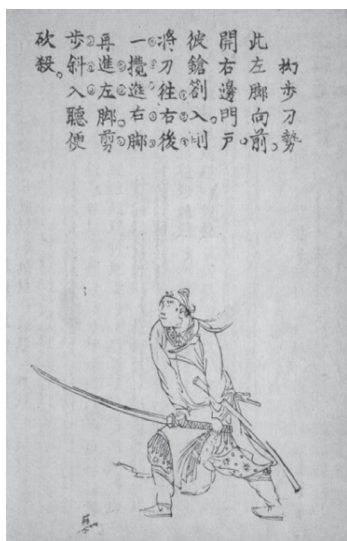 拗步刀勢
此左脚向前。
開右邊門戶
彼鎗劄入。則
將刀往右後
一攪進右脚
再進左脚。剪
步斜入聽便
砍殺。